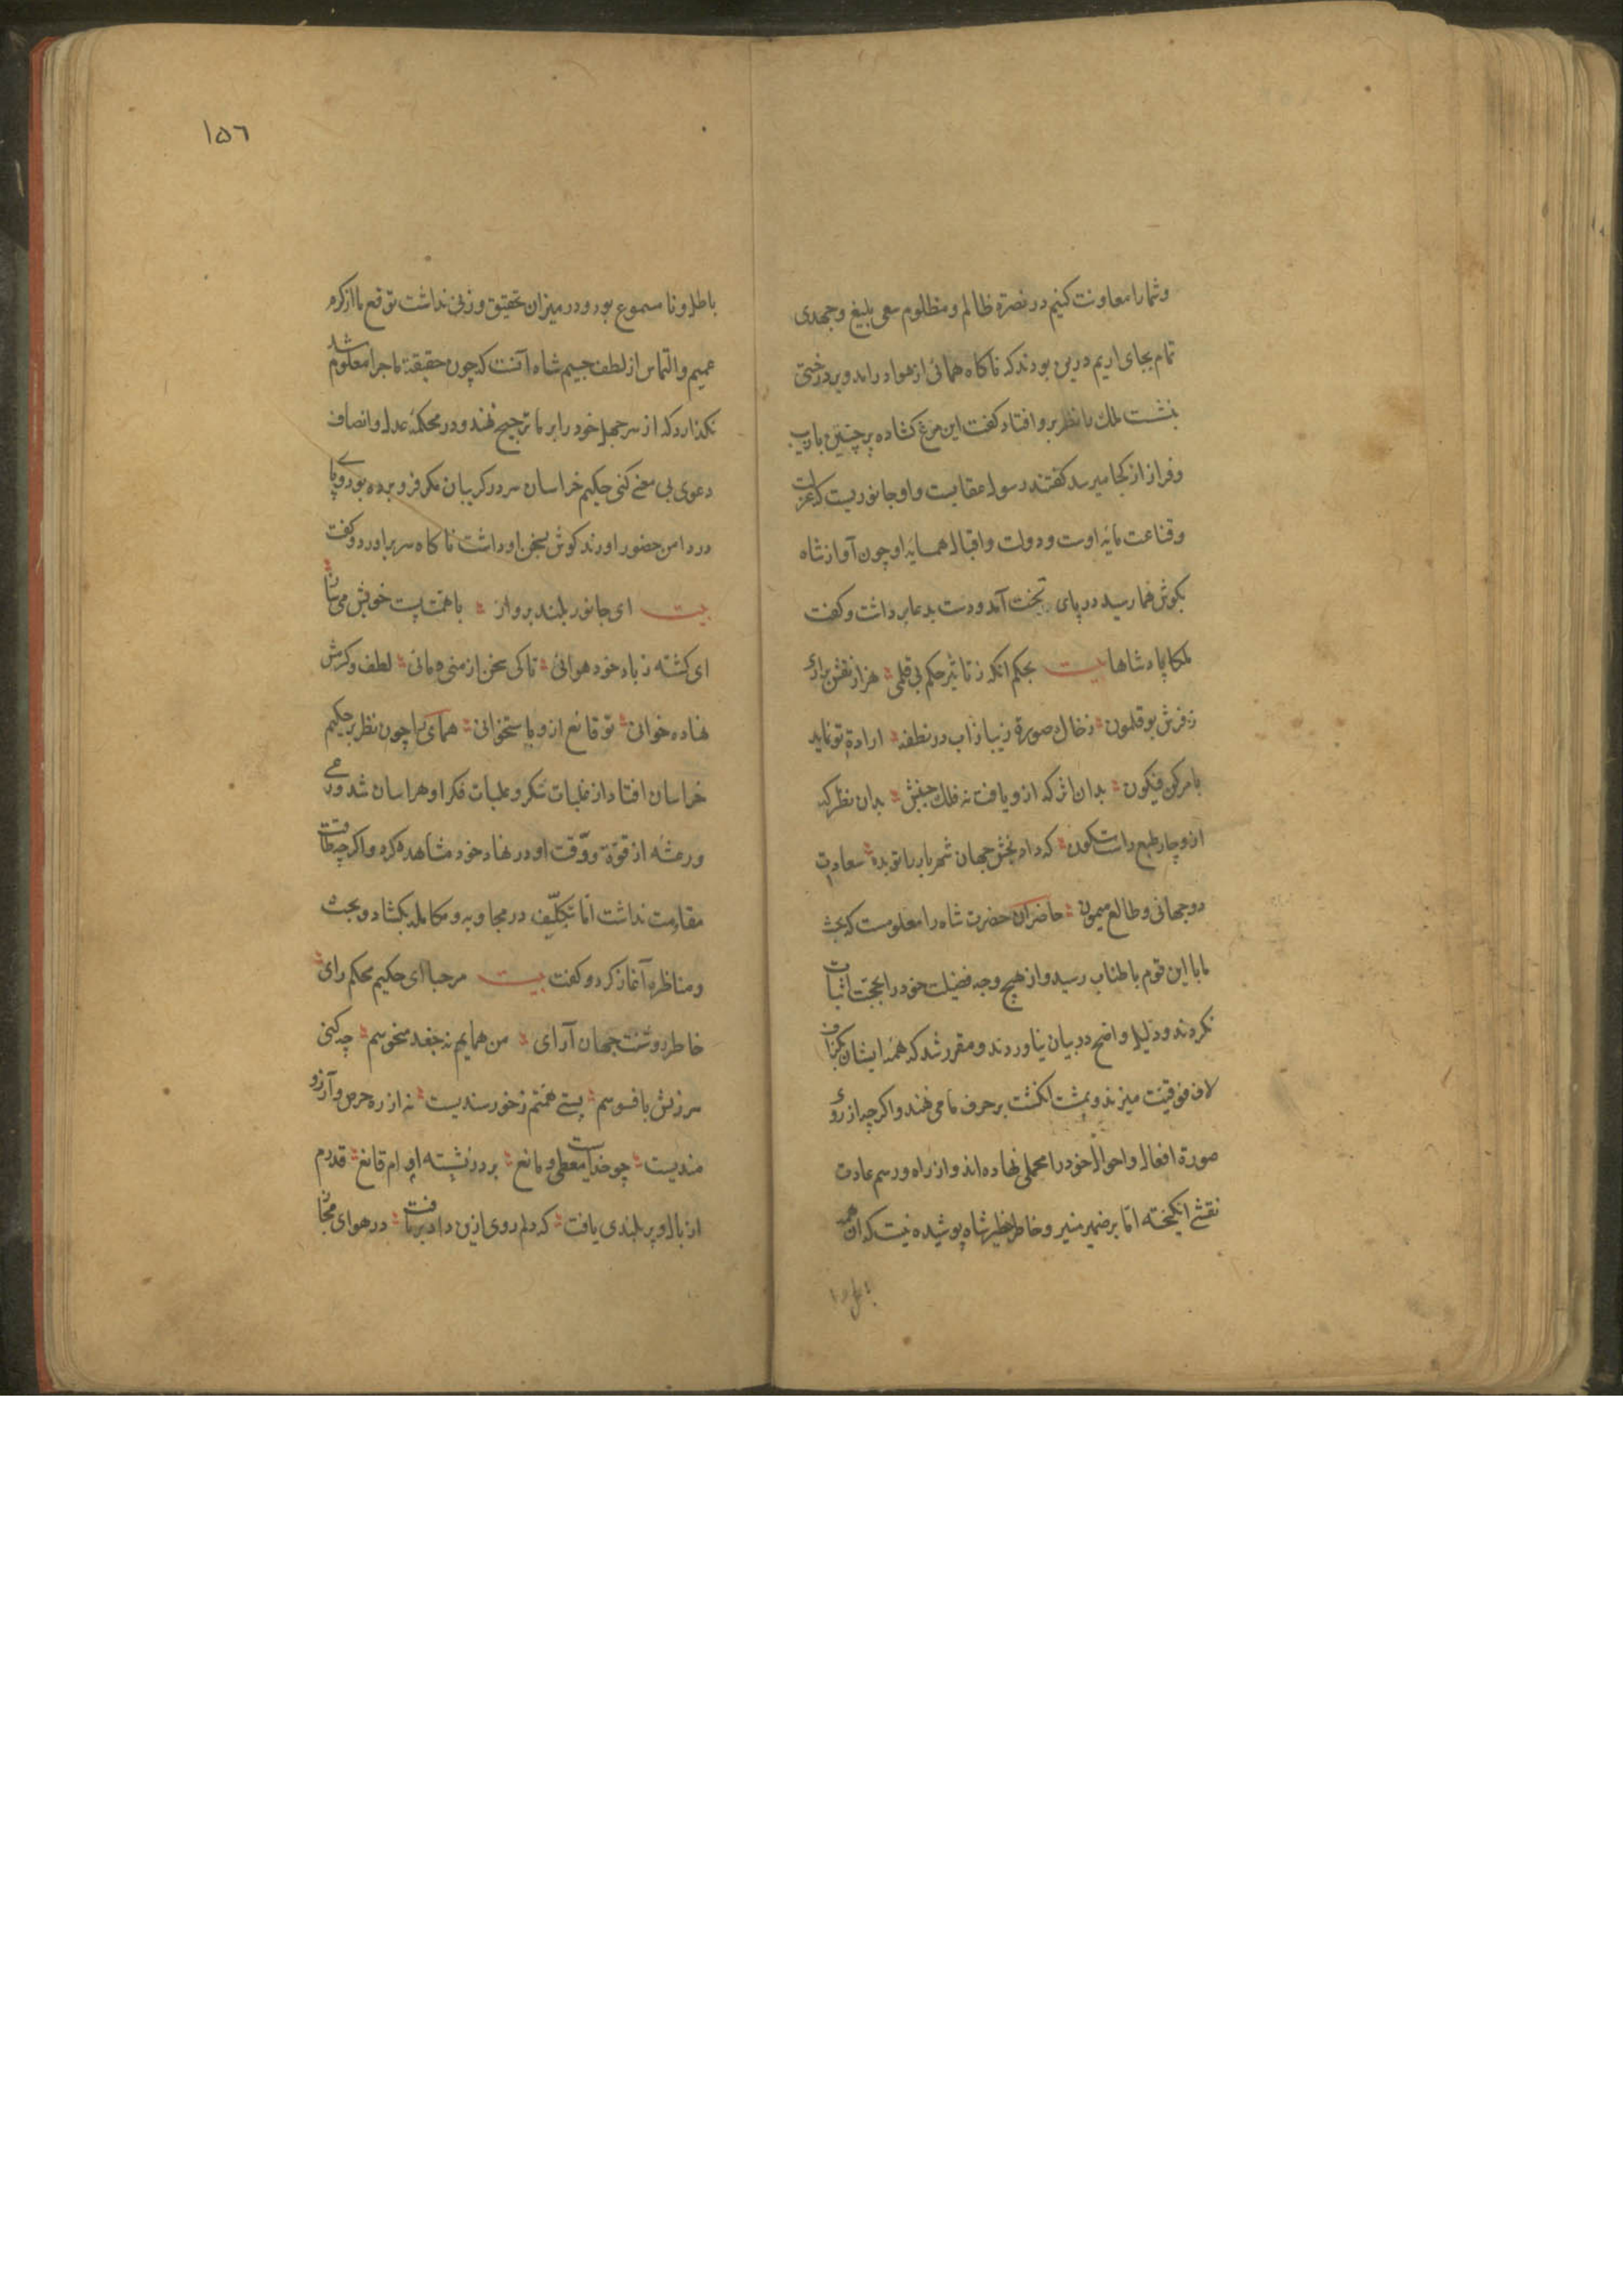 وشما را معاونت کنیم در نصرة ظالم و مظلوم سعی بلیغ و جهدی
تمام بجای اریم درین بودند که ناکاه همائی از هوا در امد و بر درختی
بنشست ملک را نظر برو افتاد کفت این مرغ کشاده پر چنین با زیب
وفراز از کجا میرسد کفتند رسول عقابست و او جانوریست که عزلت
وقناعت مایه اوست و دولت و اقبال همسایه او چون آواز شاه
بکوش هما رسید در پای تخت آمد و دست بدعا برداشت و کفت
ملکا پادشاها بیت بحکم انکه ز تاثیر حکم بی قلمی هزار نقش برارد
ز فرش بوقلمون ز خاک صورة زیبا ز آب در نطفه ارادة تو نماید
بامر کن فیکون بدان اثر که ازو یافت نه فلک جنبش بدان نظر که
ازو چار طبع راست سکون که داد بخش جهان شهریار باتو بده سعادت
دوجهانی و طالع میمون حاضران حضرت شاه را معلومست که بحث
ما با این قوم باطناب رسید و از هیچ وجه فضیلت خود را بحجت اثبات
نکردند و دلیل واضح در بیان نیاوردند و مقرر شد که همه ایشان بکزاف
لاف فوقیت میزنند و بمشت انکشت بر حرف ما می نهند و اکرچه از روی
صورة افعال و احوال خود را محملی نهاده اند و از راه و رسم عادت
نقشی انکیخته اما بر ضمیر منیر و خاطر خطیر شاه پوشیده نیست که آن همه
باطل و نا
١۵٦
باطل و نا مسموع بود و در میزان تحقیق وزنی نداشت توقع ما از کرم
عمیم و التماس از لطف جسیم شاه آنست که چون حقیقة ماجرا معلوم شد
نکذارد که از سر جهل خود را بر ما ترجیح نهند و در محکمه عدل و انصاف
دعوی بی معنی کنی حکیم خراسان سر در کریبان مکر فرو برده بود و پای
در دامن حضور اورند کوش بسخن او داشت ناکاه سر براورد و کفت
بیت ای جانور بلند پرواز با همت پست خویش می ساز
ای کشته ز باد خود هوائی تا کی سخن از منی و مائی لطف و کرمش
نهاده خوانی تو قانع ازو باستخوانی همای را چون نظر بر حکیم
خراسان افتاد از غلبات تنکر و علبات فکر او هراسان شد و رعبی
ورعشه از قوة ووقت او در نهاد خود مشاهده کرد و اکرچه طاقت
مقاومت نداشت اما بتکلیف در مجاوبه و مکامله بکشاد و بحث
ومناظره آغاز کرد و کفت بیت مرحبا ای حکیم محکم رای
خاطر روشنت جهان آرای من همایم نه جغد منحوسم چه کنی
سرزنش بافسوسم پستی همتم ز خورسندیست نه از ره حرص و آرزو
مندیست چو خداست معطی و مانع بر در نشسته ام قانع قدرم
از بال و پر بلندی یافت که دلم روی ازین و اد بر تافت در هوای مجاز